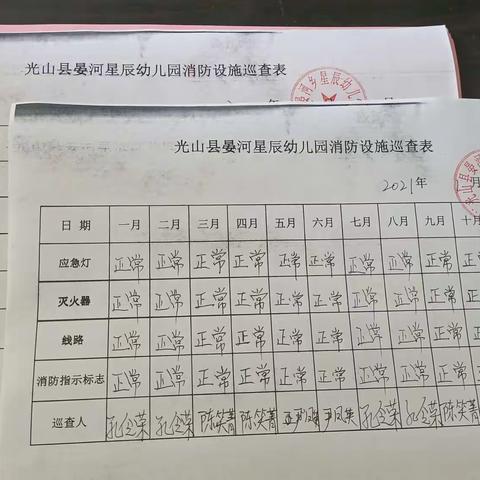 光山县晏河星辰幼儿园消防设施巡查表
晏河乡星辰幼儿
光山县晏河星辰幼儿园消防设施巡查表
2021年 月
光山县晏河
日期 一月 二月 三月 四月 五月 六月 七月 八月 九月 十月
应急灯 正常 正常 正常 正常 正常 正常 正常 正常 正常 正常
灭火器 正常 正常 正常 正常 正常 正常 正常 正常 正常 正
线路 正常 正常 正常 正常 正常 正常 正常 正常 正常 正
消防指示标志 正常 正常 正常 正常 正常 正常 正常 正常 正常 正
巡查人 陈笑菁 陈笑菁 陈笑